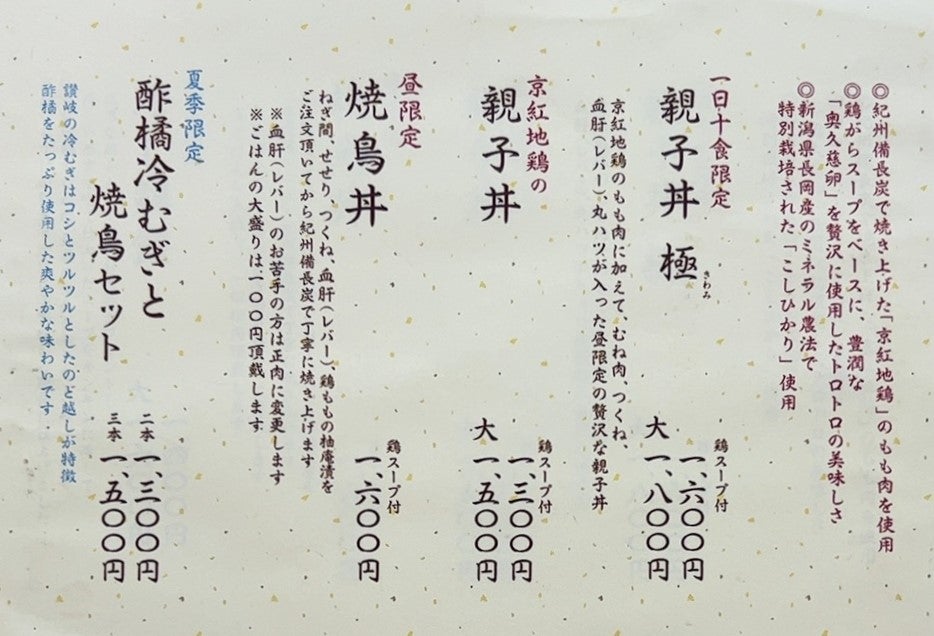 ◎紀州備長炭で焼き上げた「京紅地鶏」のもも肉を使用
◎鶏がらスープをベースに、豊潤な
「奥久慈卵」を贅沢に使用したトロトロの美味しさ
◎新潟県長岡産のミネラル農法で
特別栽培された「こしひかり」使用
一日十食限定
親子丼 極
きわみ
鶏スープ付
一、六〇〇円
大 一、八〇〇円
京紅地鶏のもも肉に加えて、むね肉、つくね、
血肝（レバー）、丸ハツが入った昼限定の贅沢な親子丼
京紅地鶏の
親子丼
鶏スープ付
一、三〇〇円
大 一、五〇〇円
昼限定
焼鳥丼
鶏スープ付
一、六〇〇円
ねぎ間、せせり、つくね、血肝（レバー）、鶏ももの柚庵漬を
ご注文頂いてから紀州備長炭で丁寧に焼き上げます
※血肝（レバー）のお苦手の方は正肉に変更します
※ごはんの大盛りは一〇〇円頂戴します
夏季限定
酢橘冷むぎと
焼鳥セット
二本 一、三〇〇円
三本 一、五〇〇円
讃岐の冷むぎはコシとツルツルとしたのど越しが特徴
酢橘をたっぷり使用した爽やかな味わいです．